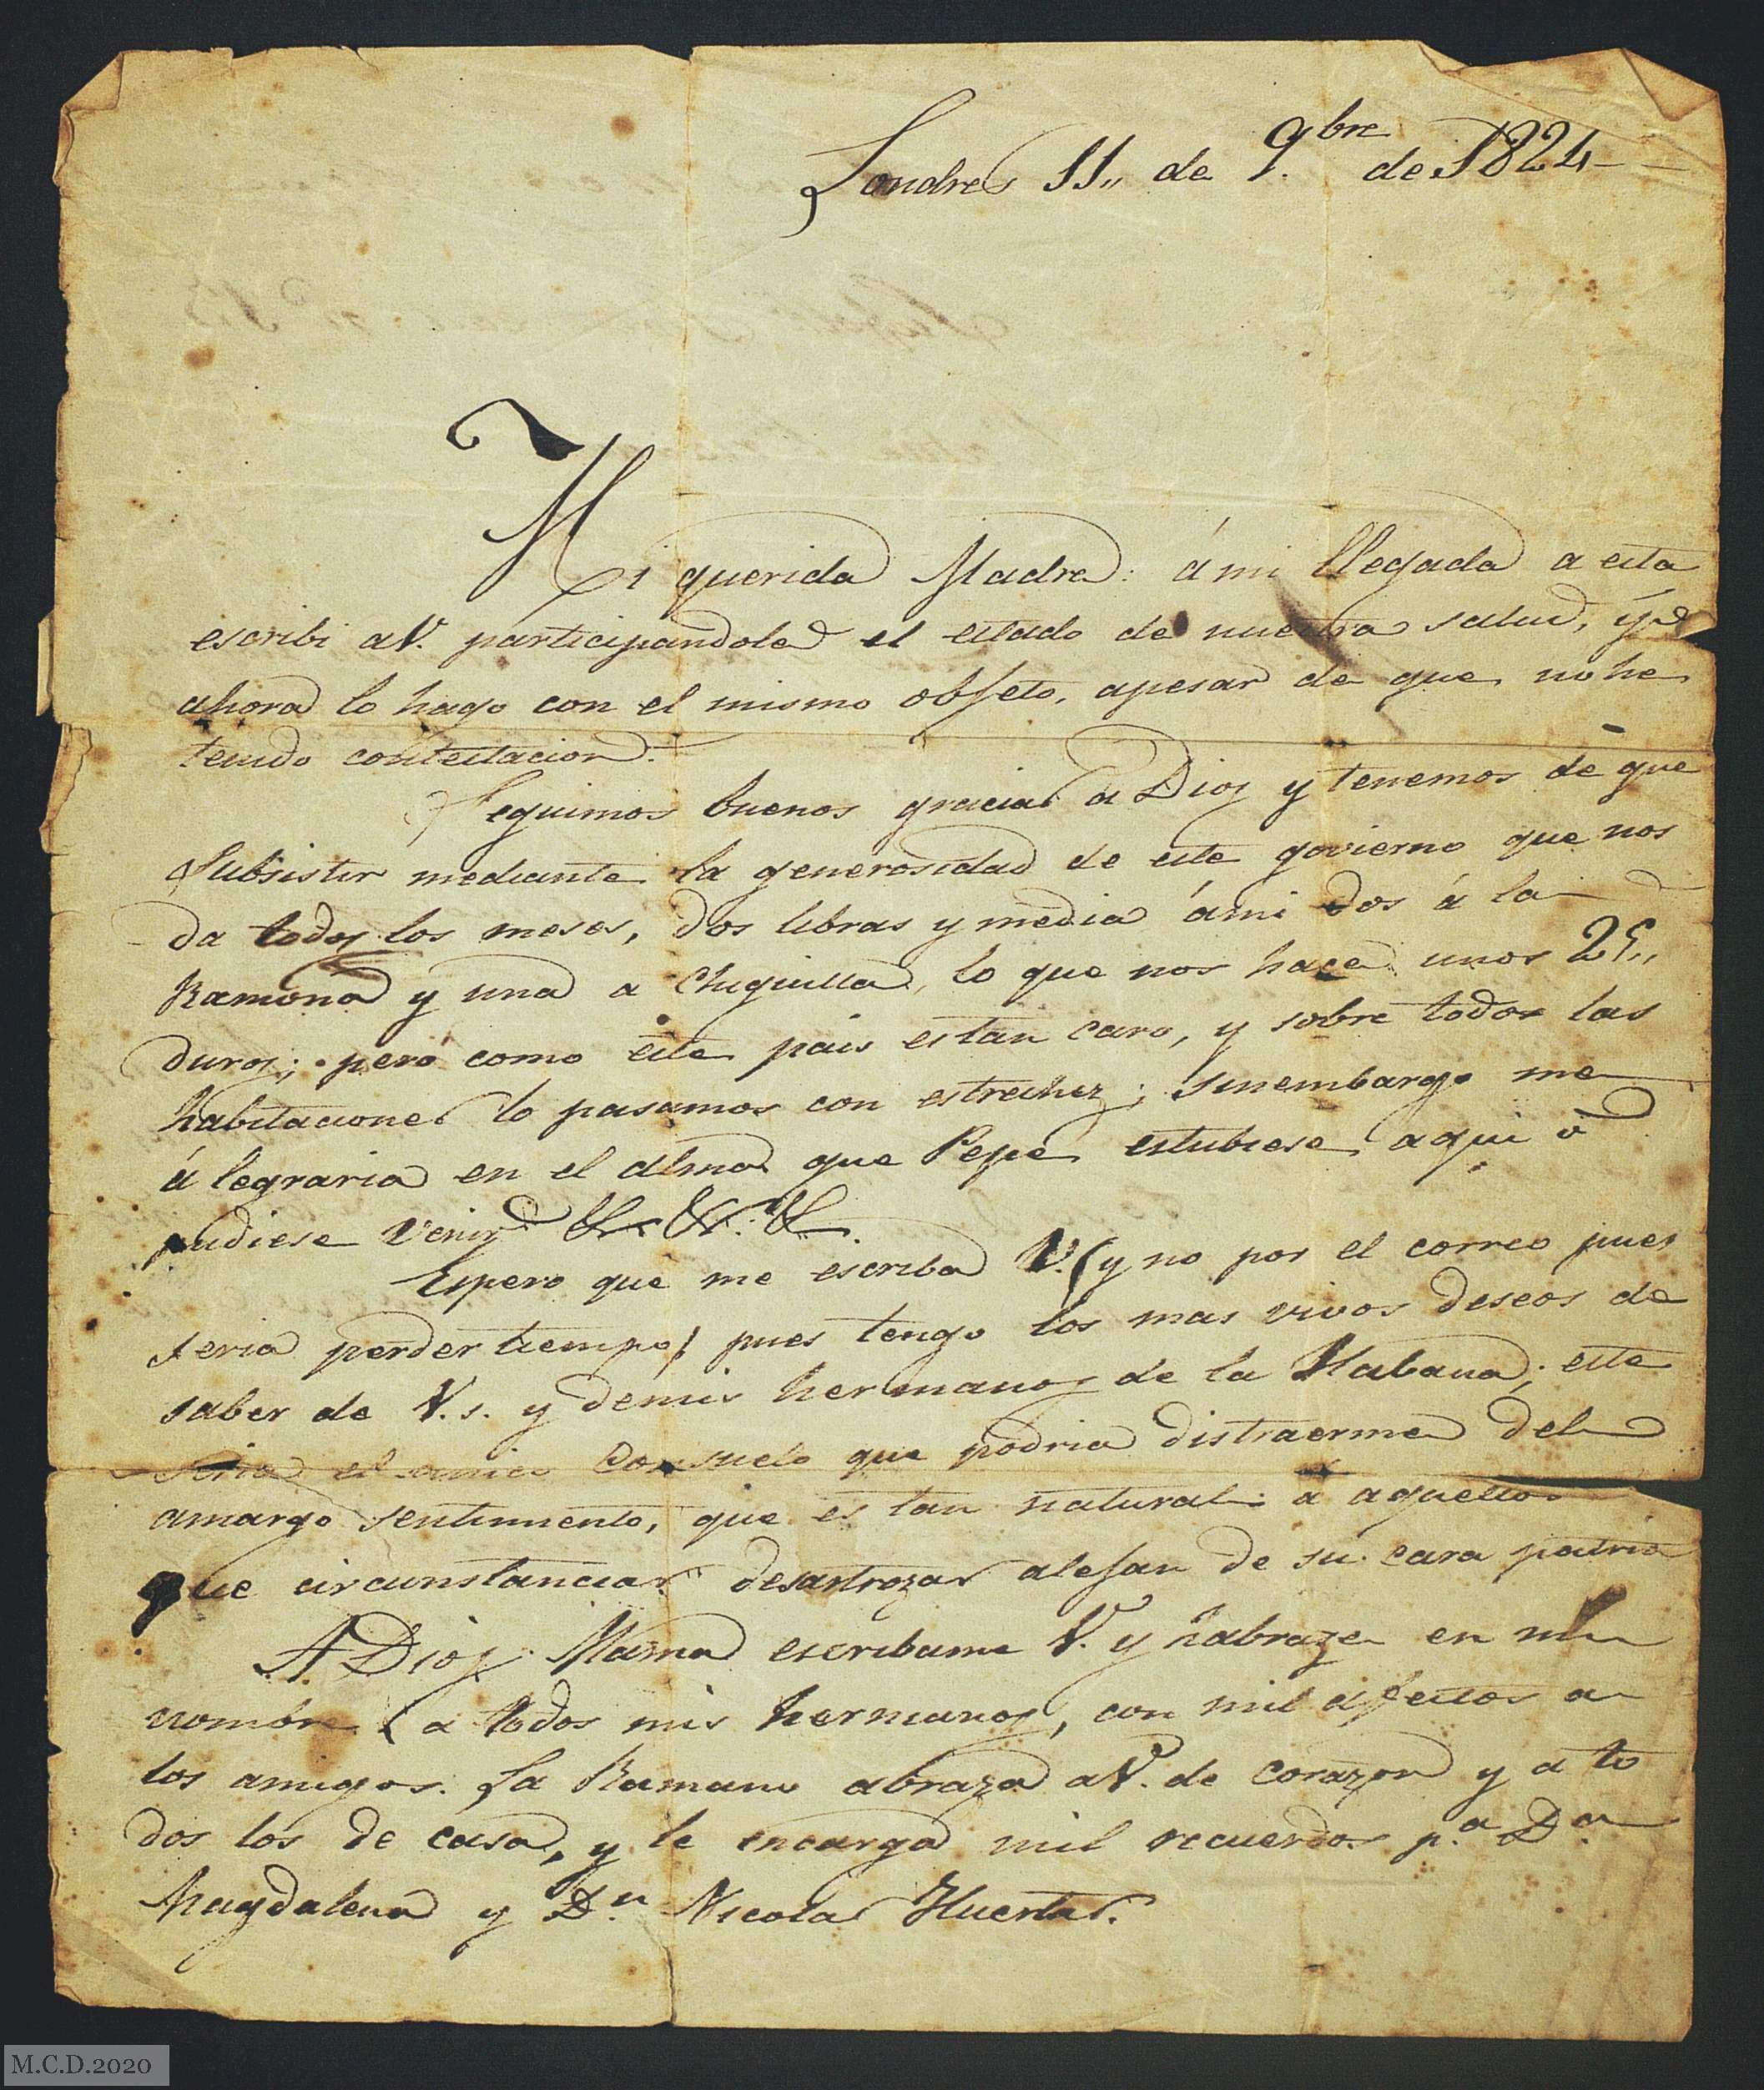 Londres 11,, de 9.bre de 1824
Mi querida Madre: á mi llegada a esta
escribi a V. participandole el estado de nuestra salud, y
ahora lo hago con el mismo objeto, apesar de que no he
tenido contestacion.
Seguimos buenos gracias a Dios y tenemos de que
subsistir mediante la generosidad de este govierno que nos
da todos los meses, dos libras y media ámi dos á la
Ramona y una a Chiquilla, lo que nos hace unos 25,,
duros; pero como este pais es tan caro, y sobre todo las
habitaciones lo pasamos con estrechez; sinembargo me
álegraria en el alma que Pepe estubiese aqui ó
pudiese venir &. &. &.
Espero que me escriba V. (y no por el correo pues
seria perder tiempo) pues tengo los mas vivos deseos de
saber de V.s. y demis hermanos de la Habana; este
seria el unico consuelo que podria distraerme del
amargo sentimiento, que es tan natural á aquellos
que circunstancias desastrozas alejan de su cara patria
A Dios Mama escribame V. y habraze en mi
nombre a todos mis hermanos, con mil afectos a
los amigos. La Ramana abraza a V. de corazon y a to
dos los de casa, y le encarga mil recuerdos p.a D.a
Magdalena y D.n Nicolas Huertas.
M.C.D.2020